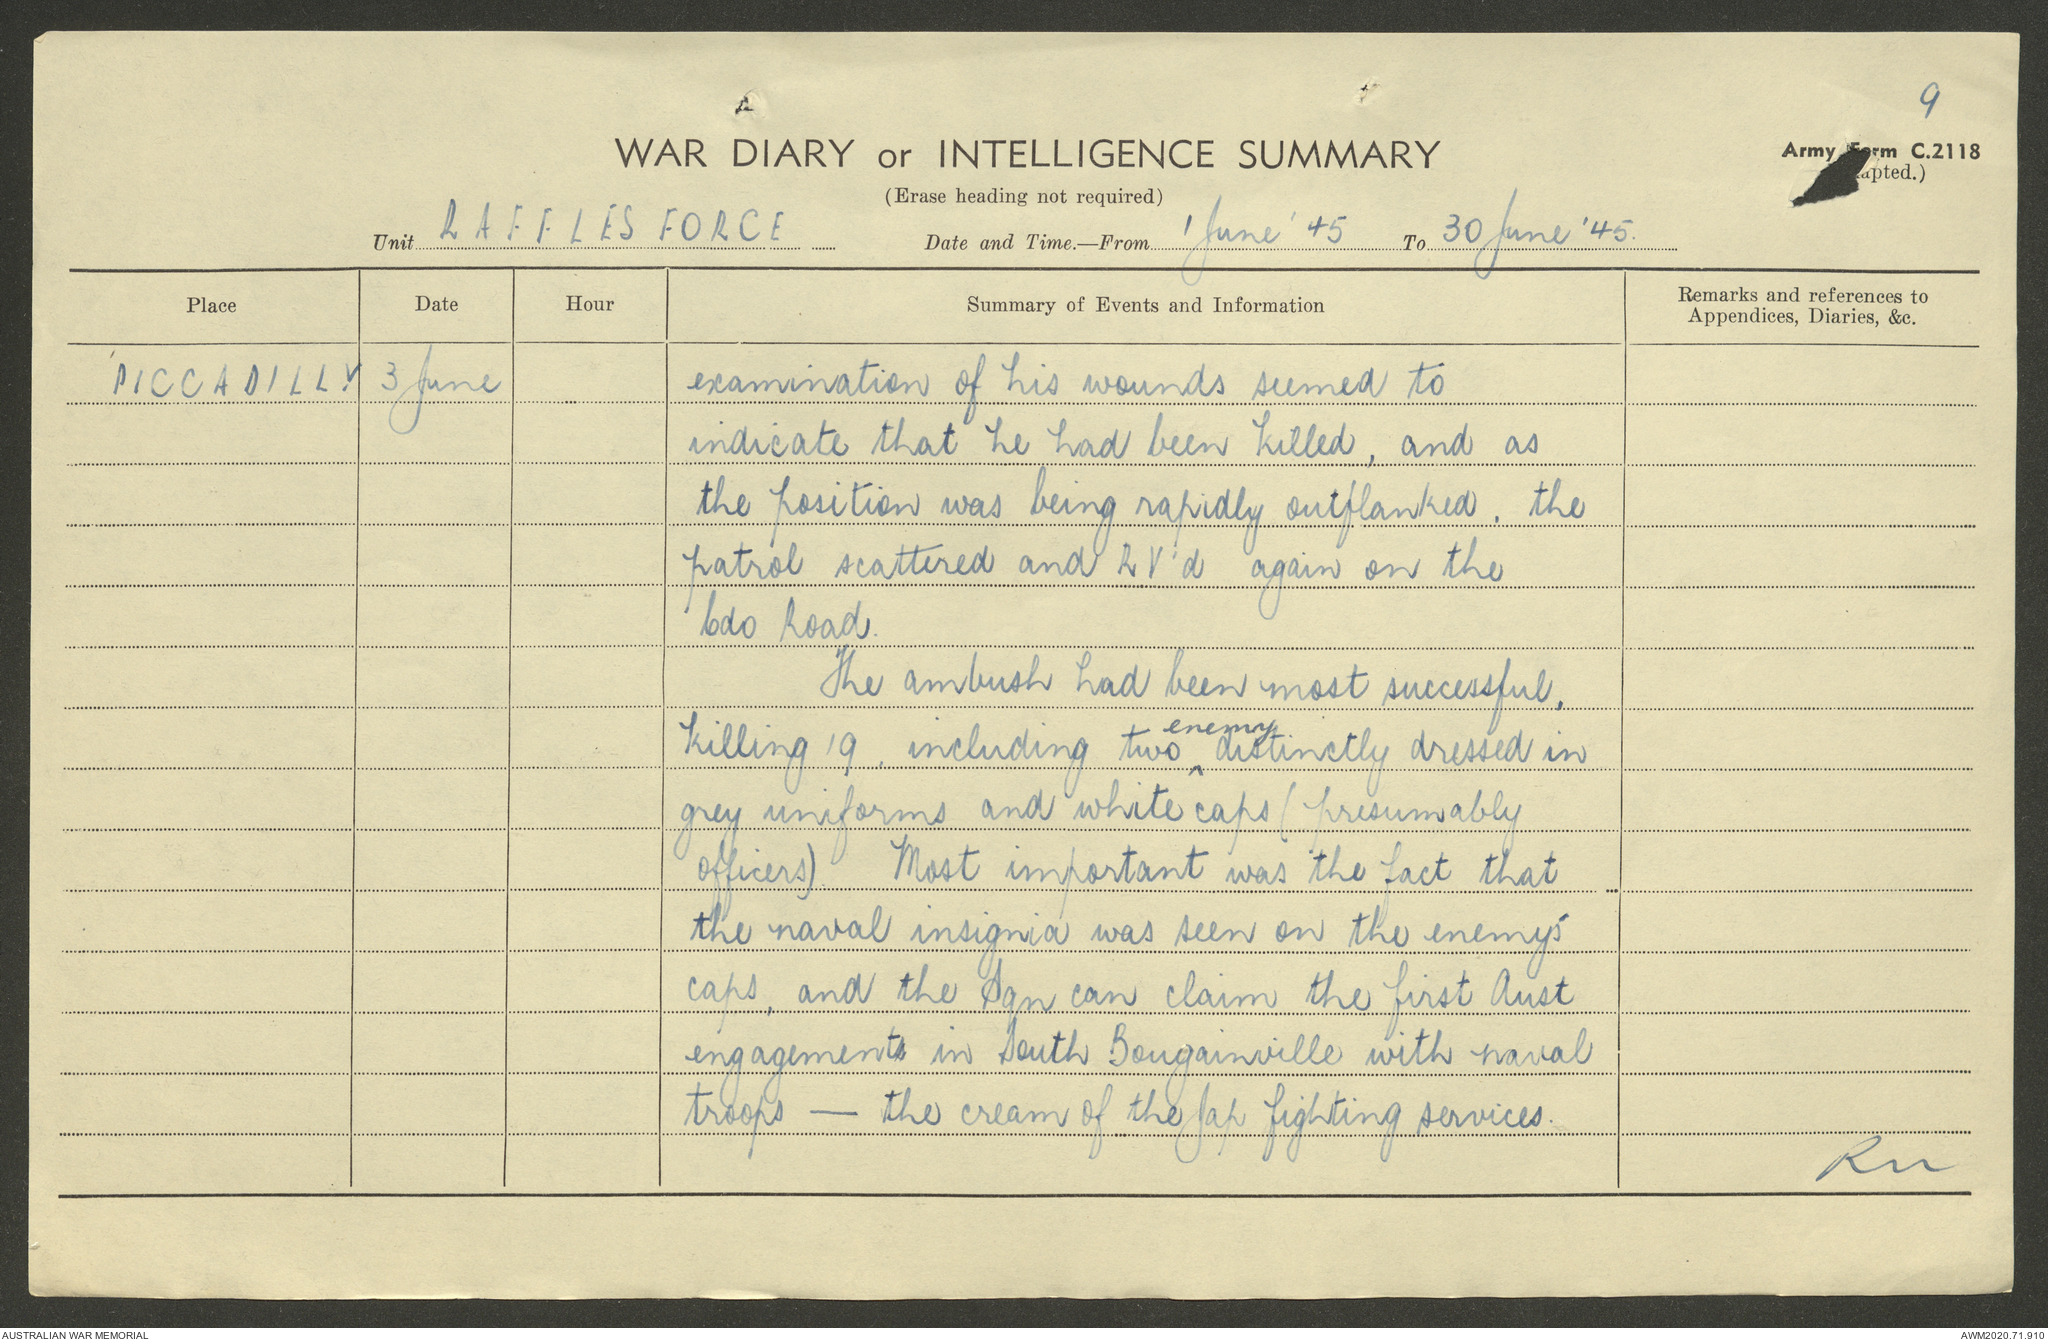 9
WAR DIARY or INTELLIGENCE SUMMARY
Army Form C.2118
apted.)
(Erase heading not required)
Unit RAFFLES FORCE Date and Time.—From 1 June '45 To 30 June '45.
Place Date Hour Summary of Events and Information Remarks and references to Appendices, Diaries, &c.
'PICCADILLY' 3 June examination of his wounds seemed to
indicate that he had been killed, and as
the position was being rapidly outflanked, the
patrol scattered and RV'd again on the
Cdo Road.
The ambush had been most successful,
killing 19, including two enemy distinctly dressed in
grey uniforms and white caps (presumably
officers). Most important was the fact that
the naval insignia was seen on the enemy's
caps, and the Sqn can claim the first Aust
engagement in South Bougainville with naval
troops — the cream of the Jap fighting services.
AUSTRALIAN WAR MEMORIAL
AWM2020.71.910